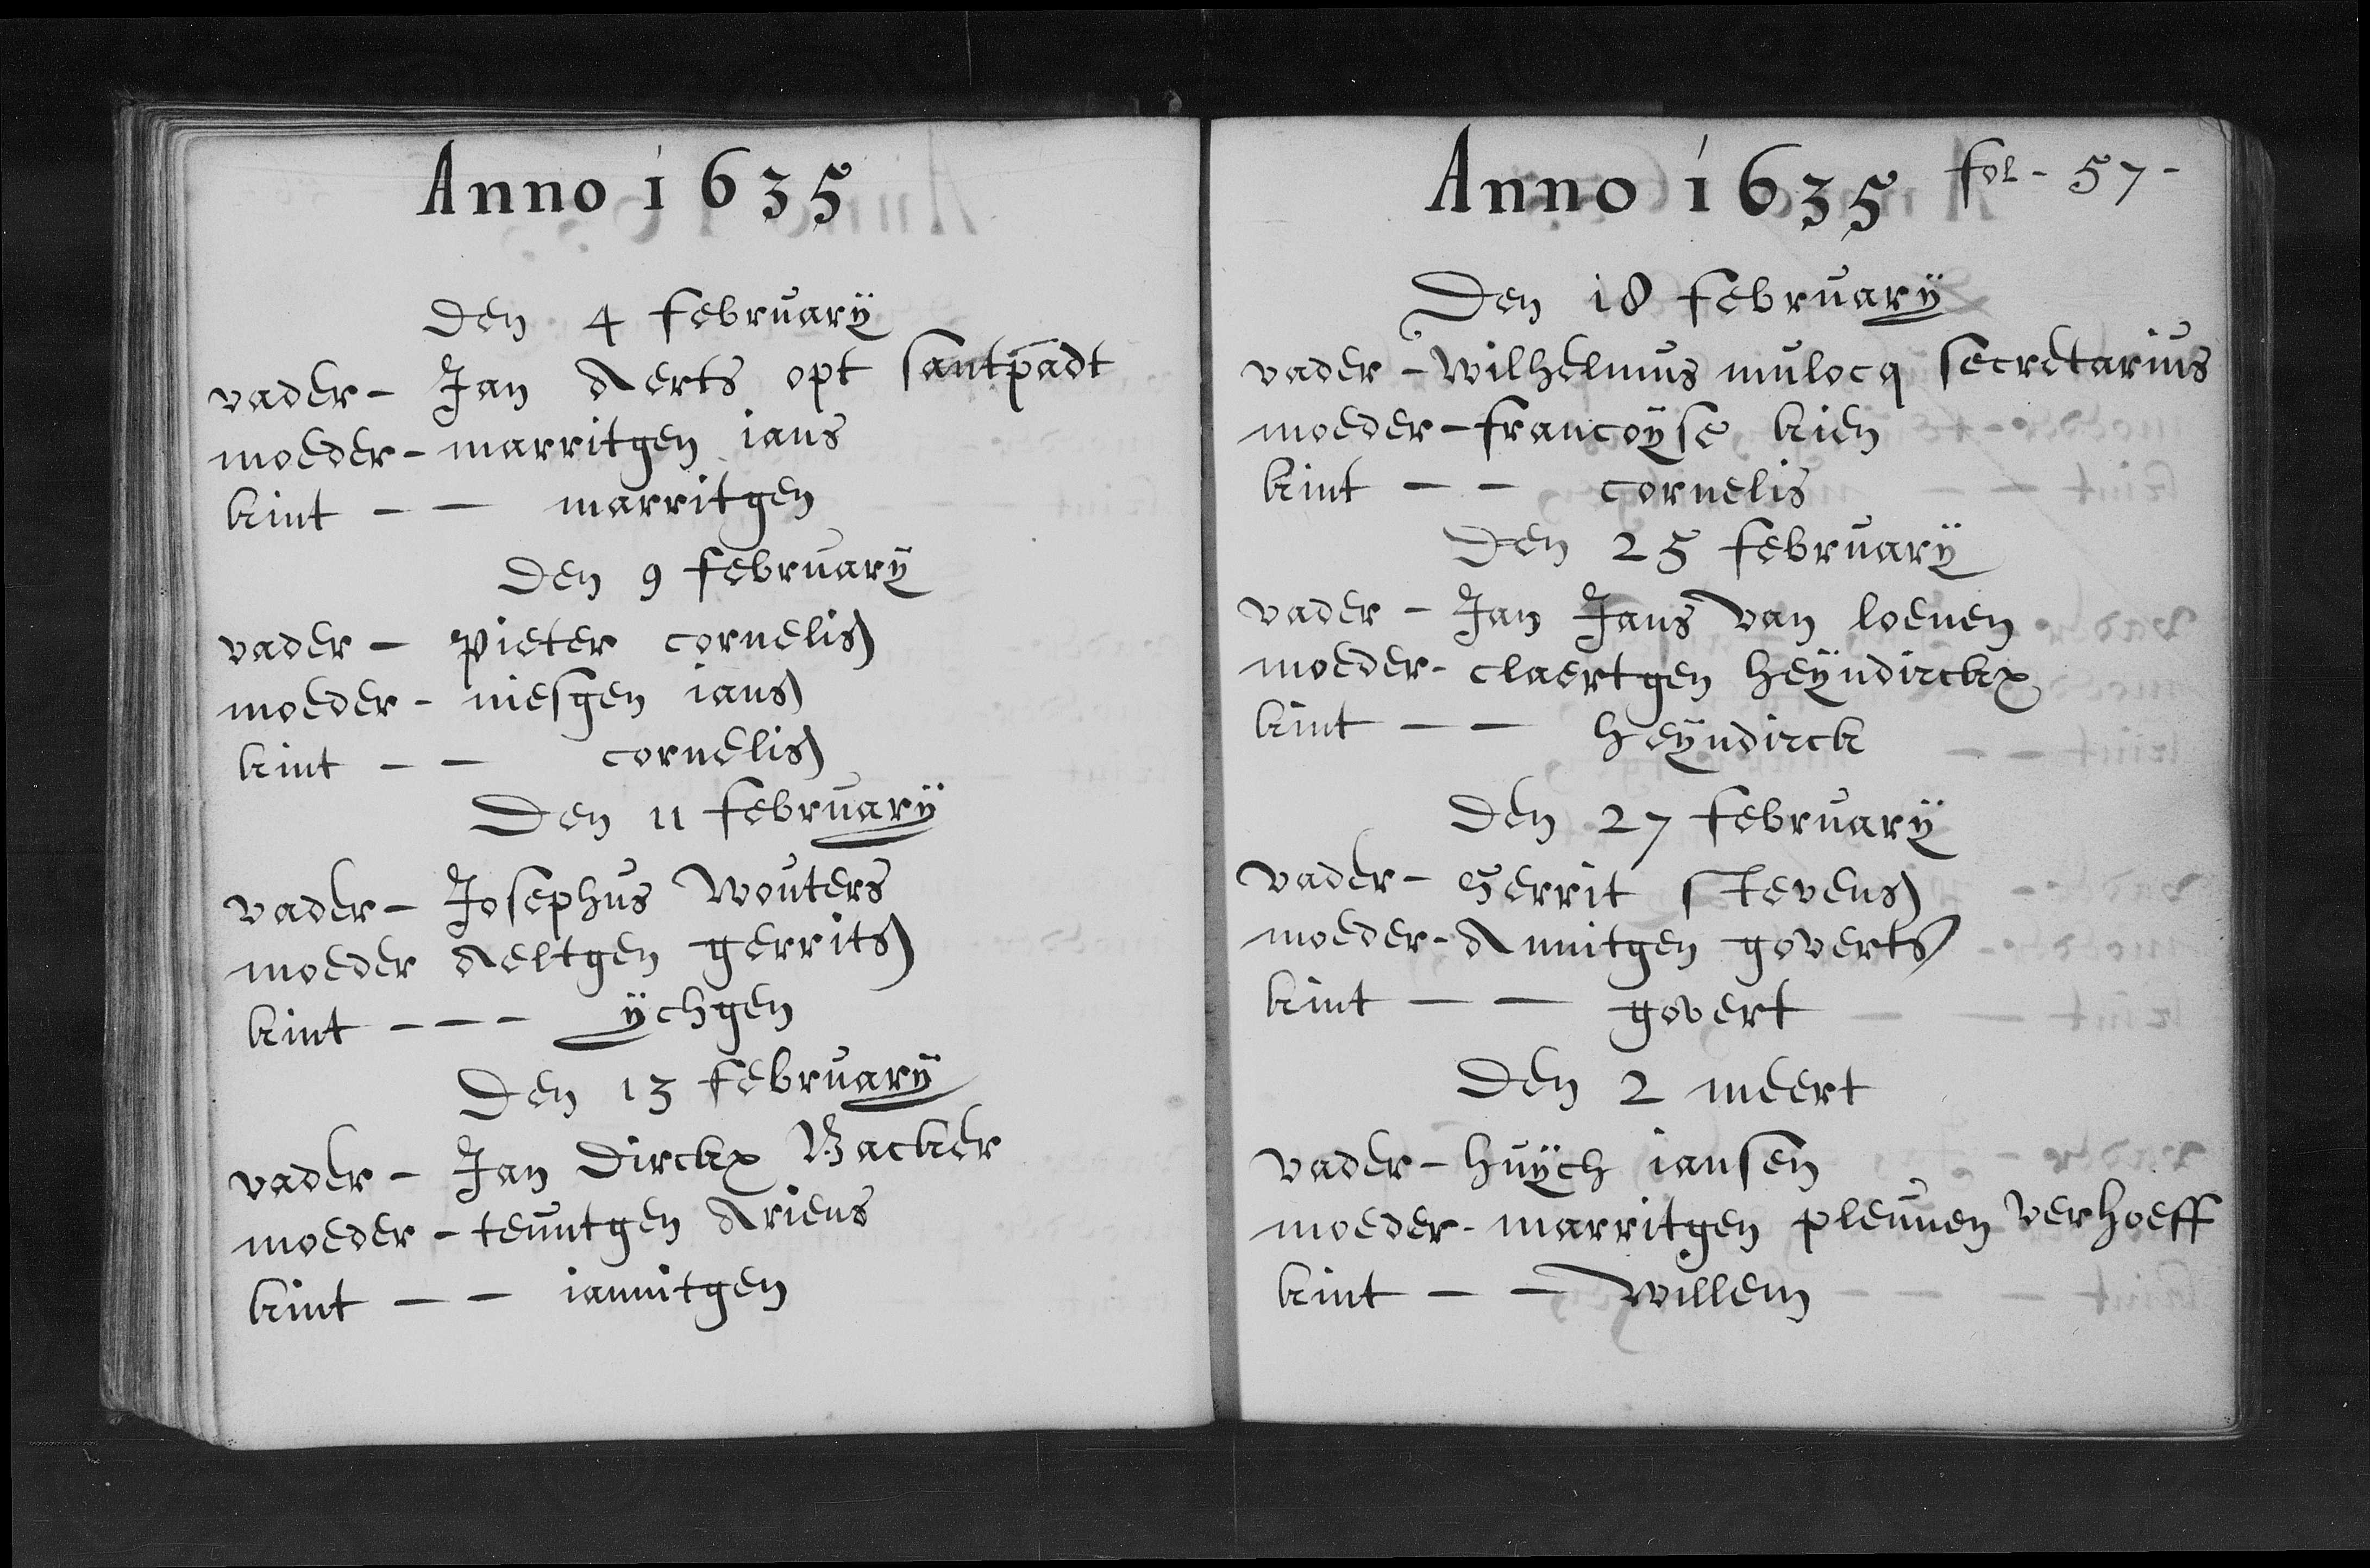 Anno 1635
Den 4 februarÿ
vader - Jan Aerts opt santpadt
moeder - marritgen ians
kint - - marritgen
Den 9 februarÿ
vader - pieter cornelis
moeder - niesgen ians
kint - - cornelis
Den 11 februarÿ
vader - Josephus Wouters
moeder Aeltgen gerrits
kint - - - ÿchgen
Den 13 februarÿ
vader - Jan Dirckx Backer
moeder - teuntgen Ariens
kint - - iannitgen
Anno 1635 fol - 57 -
Den 18 februarÿ
vader - Wilhelmus mulocq secretarius
moeder - francoÿse kien
kint - - cornelis
Den 25 februarÿ
vader - Jan Jans van loenen
moeder - claertgen heÿndirckx
kint - - heÿndirck
Den 27 februarÿ
vader - Gerrit stevens
moeder - Annitgen goverts
kint - - govert
Den 2 meert
vader - huÿch iansen
moeder - marritgen pleunen verhoeff
kint - - Willem